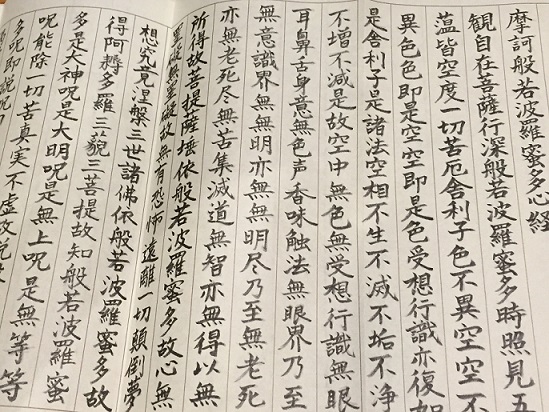 摩訶般若波羅蜜多心経
観自在菩薩行深般若波羅蜜多時照見五
蘊皆空度一切苦厄舎利子色不異空空不
異色色即是空空即是色受想行識亦復如
是舎利子是諸法空相不生不滅不垢不浄
不増不減是故空中無色無受想行識無眼
耳鼻舌身意無色声香味触法無眼界乃至
無意識界無無明亦無無明尽乃至無老死
亦無老死尽無苦集滅道無智亦無得以無
所得故菩提薩埵依般若波羅蜜多故心無
罣礙無罣礙故無有恐怖遠離一切顛倒夢
想究竟涅槃三世諸佛依般若波羅蜜多故
得阿耨多羅三藐三菩提故知般若波羅蜜
多是大神呪是大明呪是無上呪是無等等
呪能除一切苦真実不虚故説
多呪即説呪